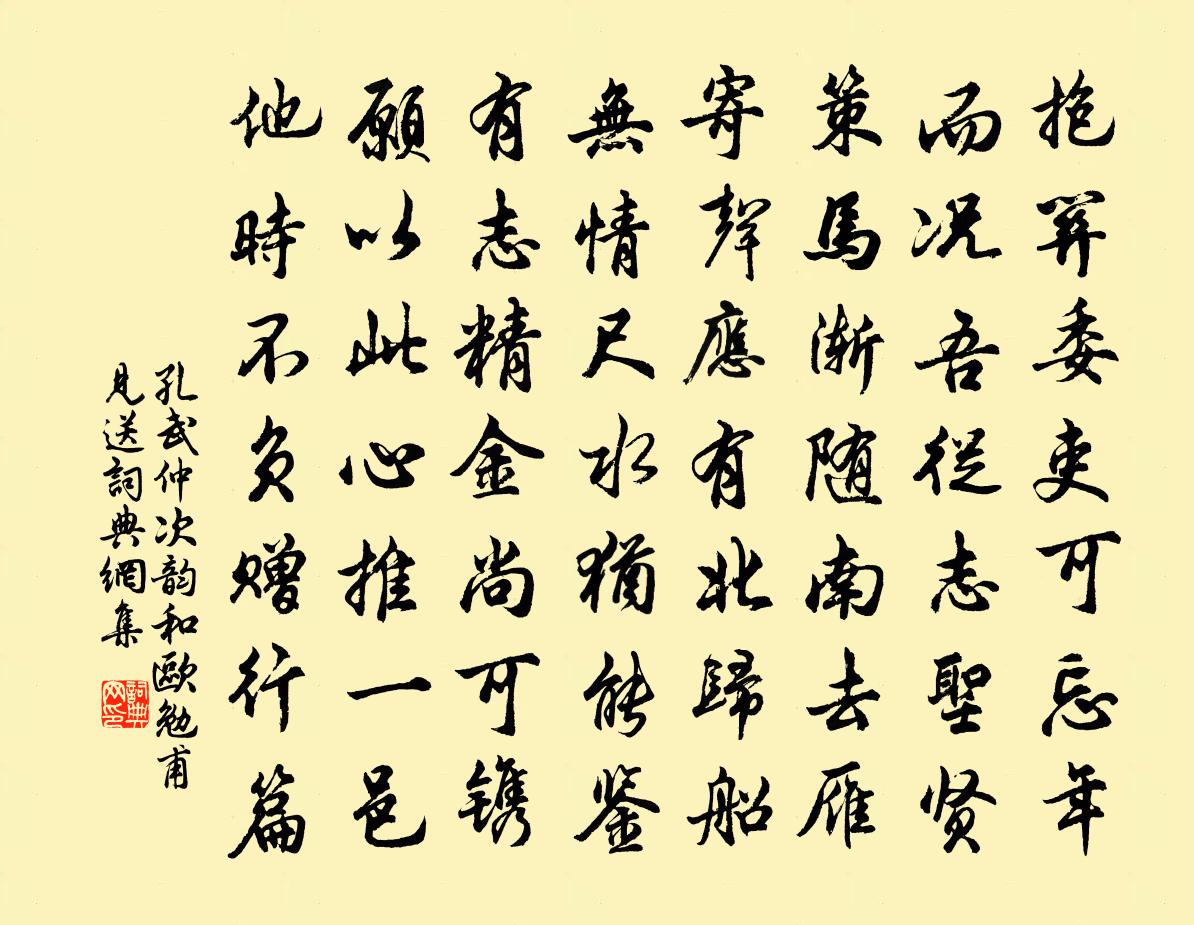 抱關委吏可忘年
而况吾從志聖贤
策馬渐随南去雁
寄聲應有北歸船
無情尺水猶能鉴
有志精金尚可镌
願以此心推一邑
他時不负赠行篇
孔武仲次韵和歐勉甫
見送詞典網集
詞典
网印